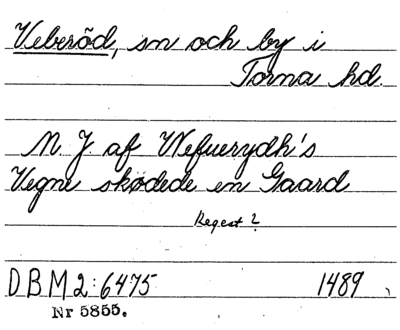 Veberöd, sn och by i
Torna hd.
N. J. af Wefuerydh's
Vegne skødede en Gaard
Regest?
DBM 2: 6475 1489
Nr 5855.